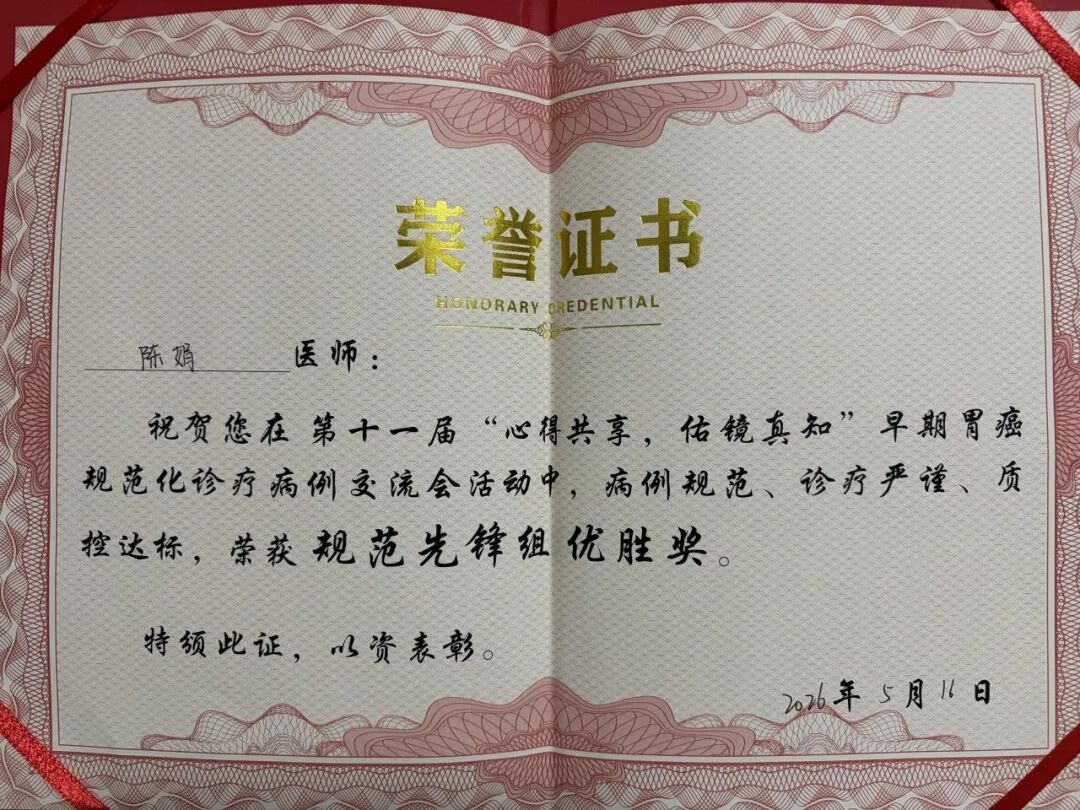 荣誉证书
HONORARY CREDENTIAL
陈娟 医师：
祝贺您在第十一届“心得共享，估镜真知”早期胃癌
规范化诊疗病例交流会活动中，病例规范、诊疗严谨、质
控达标，荣获规范先锋组优胜奖。
特颁此证，以资表彰。
2026年5月16日